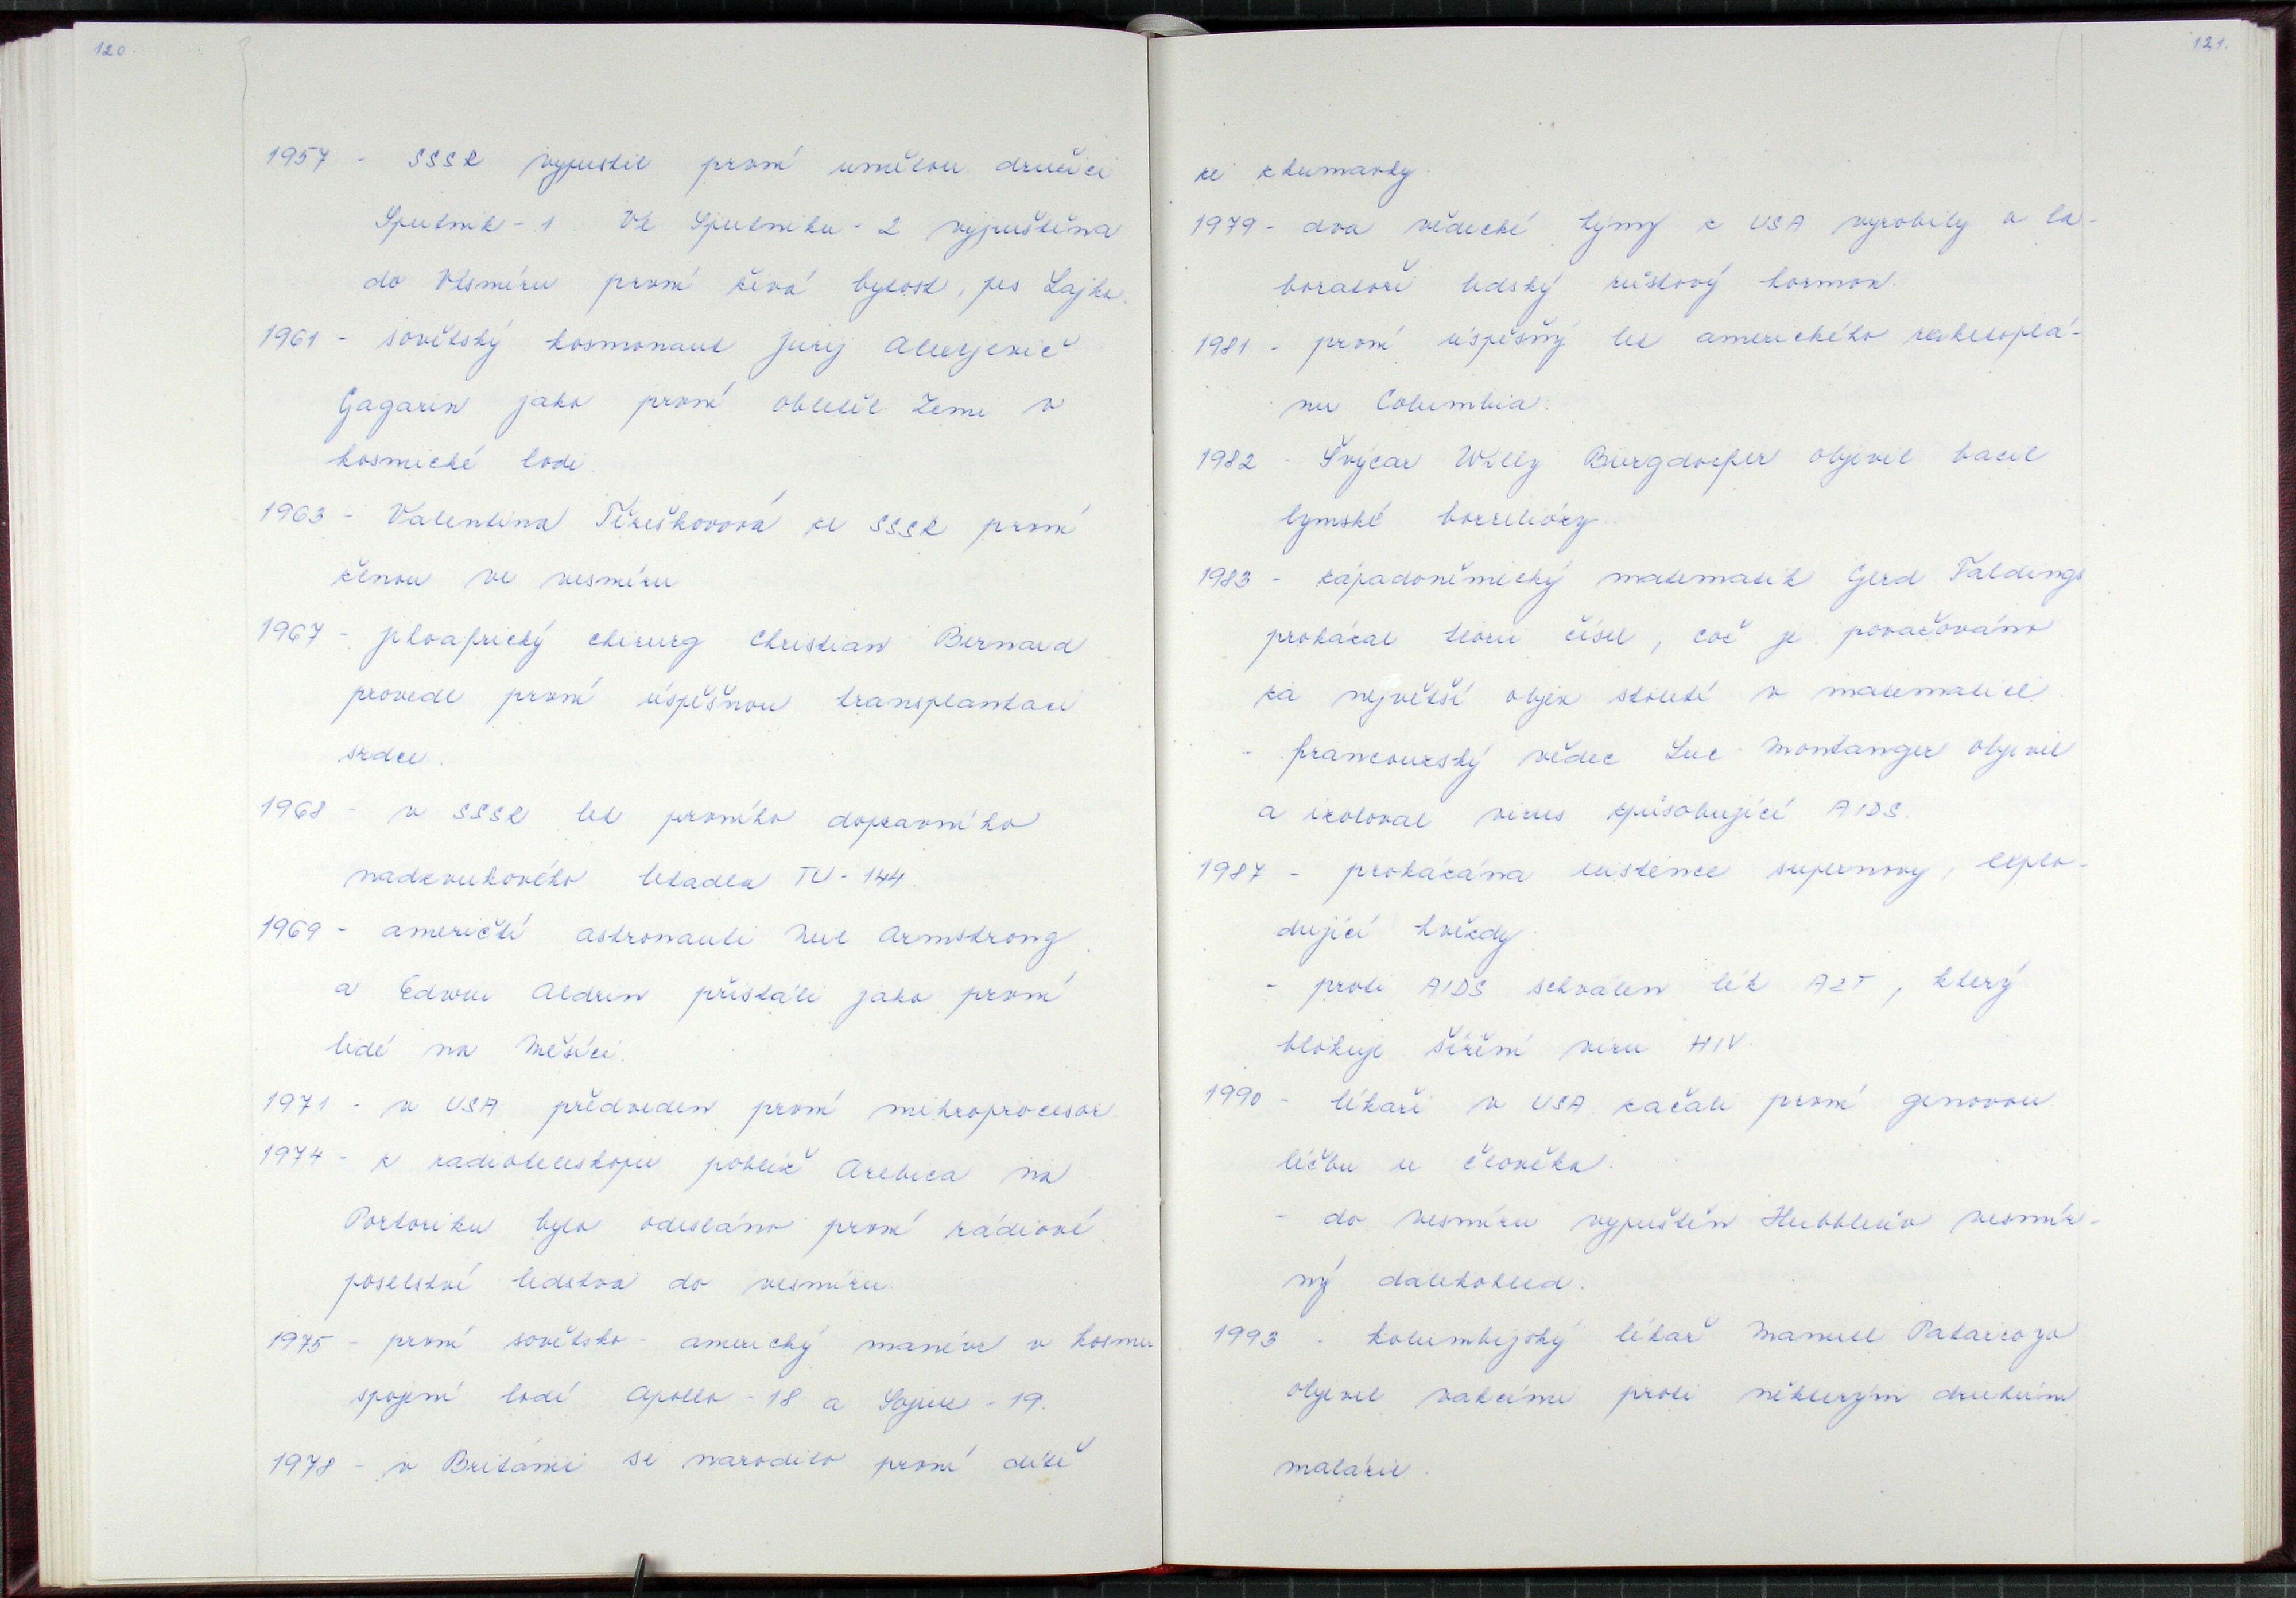 120.
1957 - SSSR vypustil první umělou družici
Sputnik - 1. Ve Sputniku - 2 vypuštěna
do Vesmíru první živá bytost, pes Lajka.
1961 - sovětský kosmonaut Jurij Alexejevič
Gagarin jako první obletěl Zemi v
kosmické lodi.
1963 - Valentina Těreškovová ze SSSR první
ženou ve vesmíru
1967 - jihoafrický chirurg Christian Bernard
provedl první úspěšnou transplantaci
srdce.
1968 - v SSSR let prvního dopravního
nadzvukového letadla TU - 144.
1969 - američtí astronauti Neil Armstrong
a Edwin Aldrin přistáli jako první
lidé na Měsíci.
1971 - v USA předveden první mikroprocesor.
1974 - z radioteleskopu poblíž Arebica na
Portoriku bylo odesláno první rádiové
poselství lidstva do vesmíru.
1975 - první sovětsko - americký manévr v kosmu
spojení lodí Apollo - 18 a Sojuz - 19.
1978 - v Británii se narodilo první dítě
121.
ze zkumavky.
1979 - dva vědecké týmy z USA vyrobily v la-
boratoři lidský růstový hormon.
1981 - první úspěšný let amerického raketoplá-
nu Columbia.
1982 - Švýcar Willy Burgdorfer objevil bacil
lymské borreliózy.
1983 - západoněmecký matematik Gerd Faldings
prokázal teorii čísel, což je považováno
za největší objev století v matematice.
- francouzský vědec Luc Montanger objevil
a izoloval virus způsobující AIDS.
1987 - prokázána existence supernovy, explo-
dující hvězdy.
- proti AIDS schválen lék AZT, který
blokuje šíření viru HIV.
1990 - lékaři v USA začali první genovou
léčbu u člověka.
- do vesmíru vypuštěn Hubbleův vesmír-
ný dalekohled.
1993 - kolumbijský lékař Manuel Patarroyo
objevil vakcínu proti některým druhům
malárie.